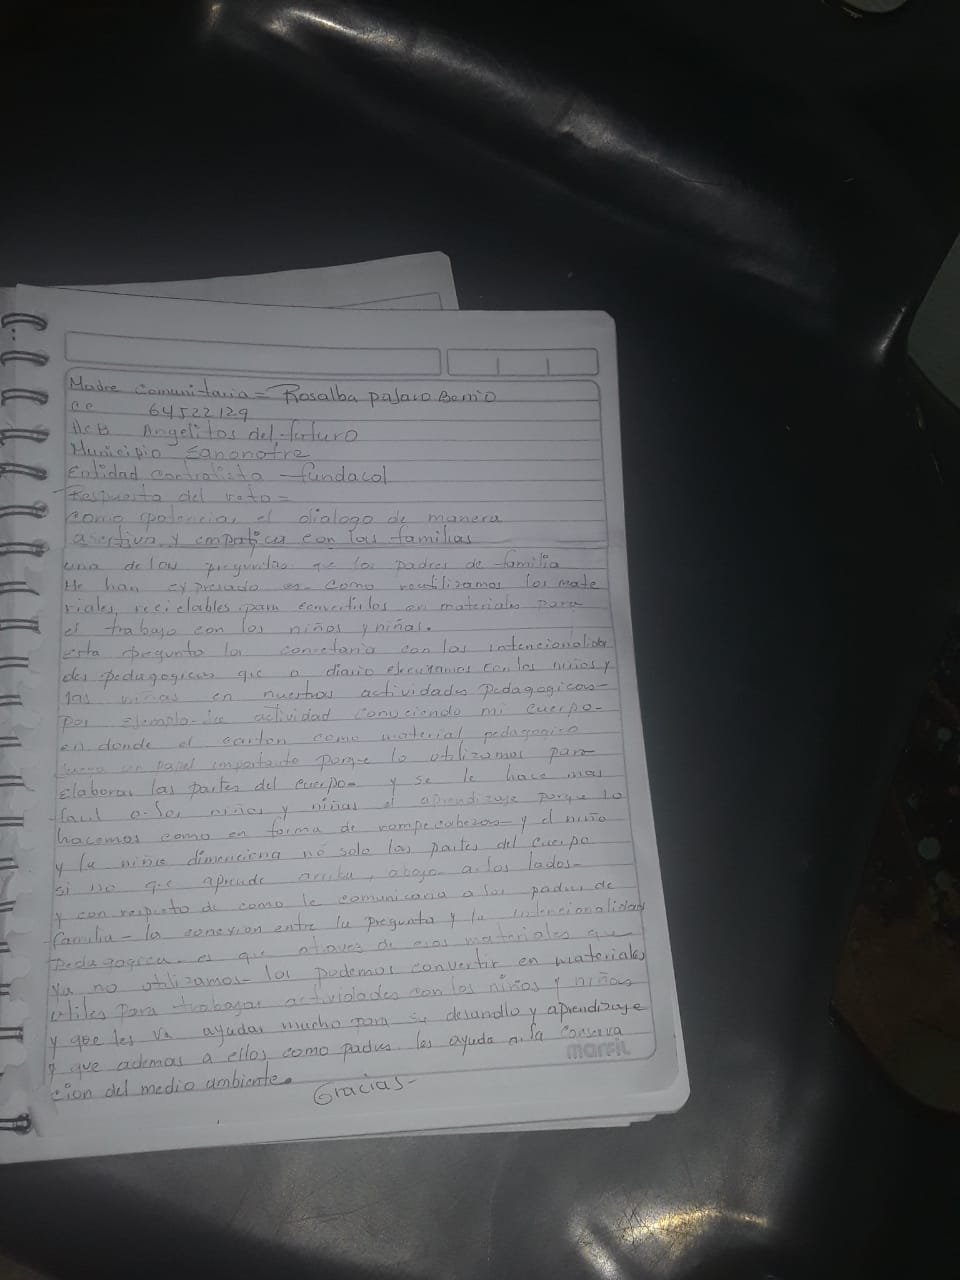 Madre Comunitaria = Rosalba pajaro Berrio
cc 64522129
HCB Angelitos del futuro
Municipio Sanonofre
Entidad contratista - fundacol
Respuesta del reto =
como potenciar el dialogo de manera
asertiva y empatica con las familias
una de las preguntas que los padres de familia
He han expresado es - como reutilizamos los mate
riales, reciclables para convertirlos en materiales para
el trabajo con los niños y niñas.
esta pregunta la conectaria con las intencionalida
des pedagogicas que a diario ejecutamos con los niños y
las niñas en nuestras actividades pedagogicas -
por ejemplo - la actividad conociendo mi cuerpo -
en donde el carton como material pedagogico
juega un papel importante porque lo utilizamos para
elaborar las partes del cuerpo - y se le hace mas
facil a los niños y niñas el aprendizaje porque lo
hacemos como en forma de rompecabezas - y el niño
y la niña dimenciona no solo las partes del cuerpo
si no que aprende arriba, abajo a los lados -
y con respecto de como le comunicaria a los padres de
familia - la conexion entre la pregunta y la intencionalidad
pedagogica. es que atraves de esos materiales que
ya no utilizamos - los podemos convertir en materiales
utiles para trabajar actividades con los niños y niñas
y que les va ayudar mucho para su desarrollo y aprendizaje
y que ademas a ellos como padres les ayuda a la conserva
cion del medio ambiente.
Gracias -
marfil